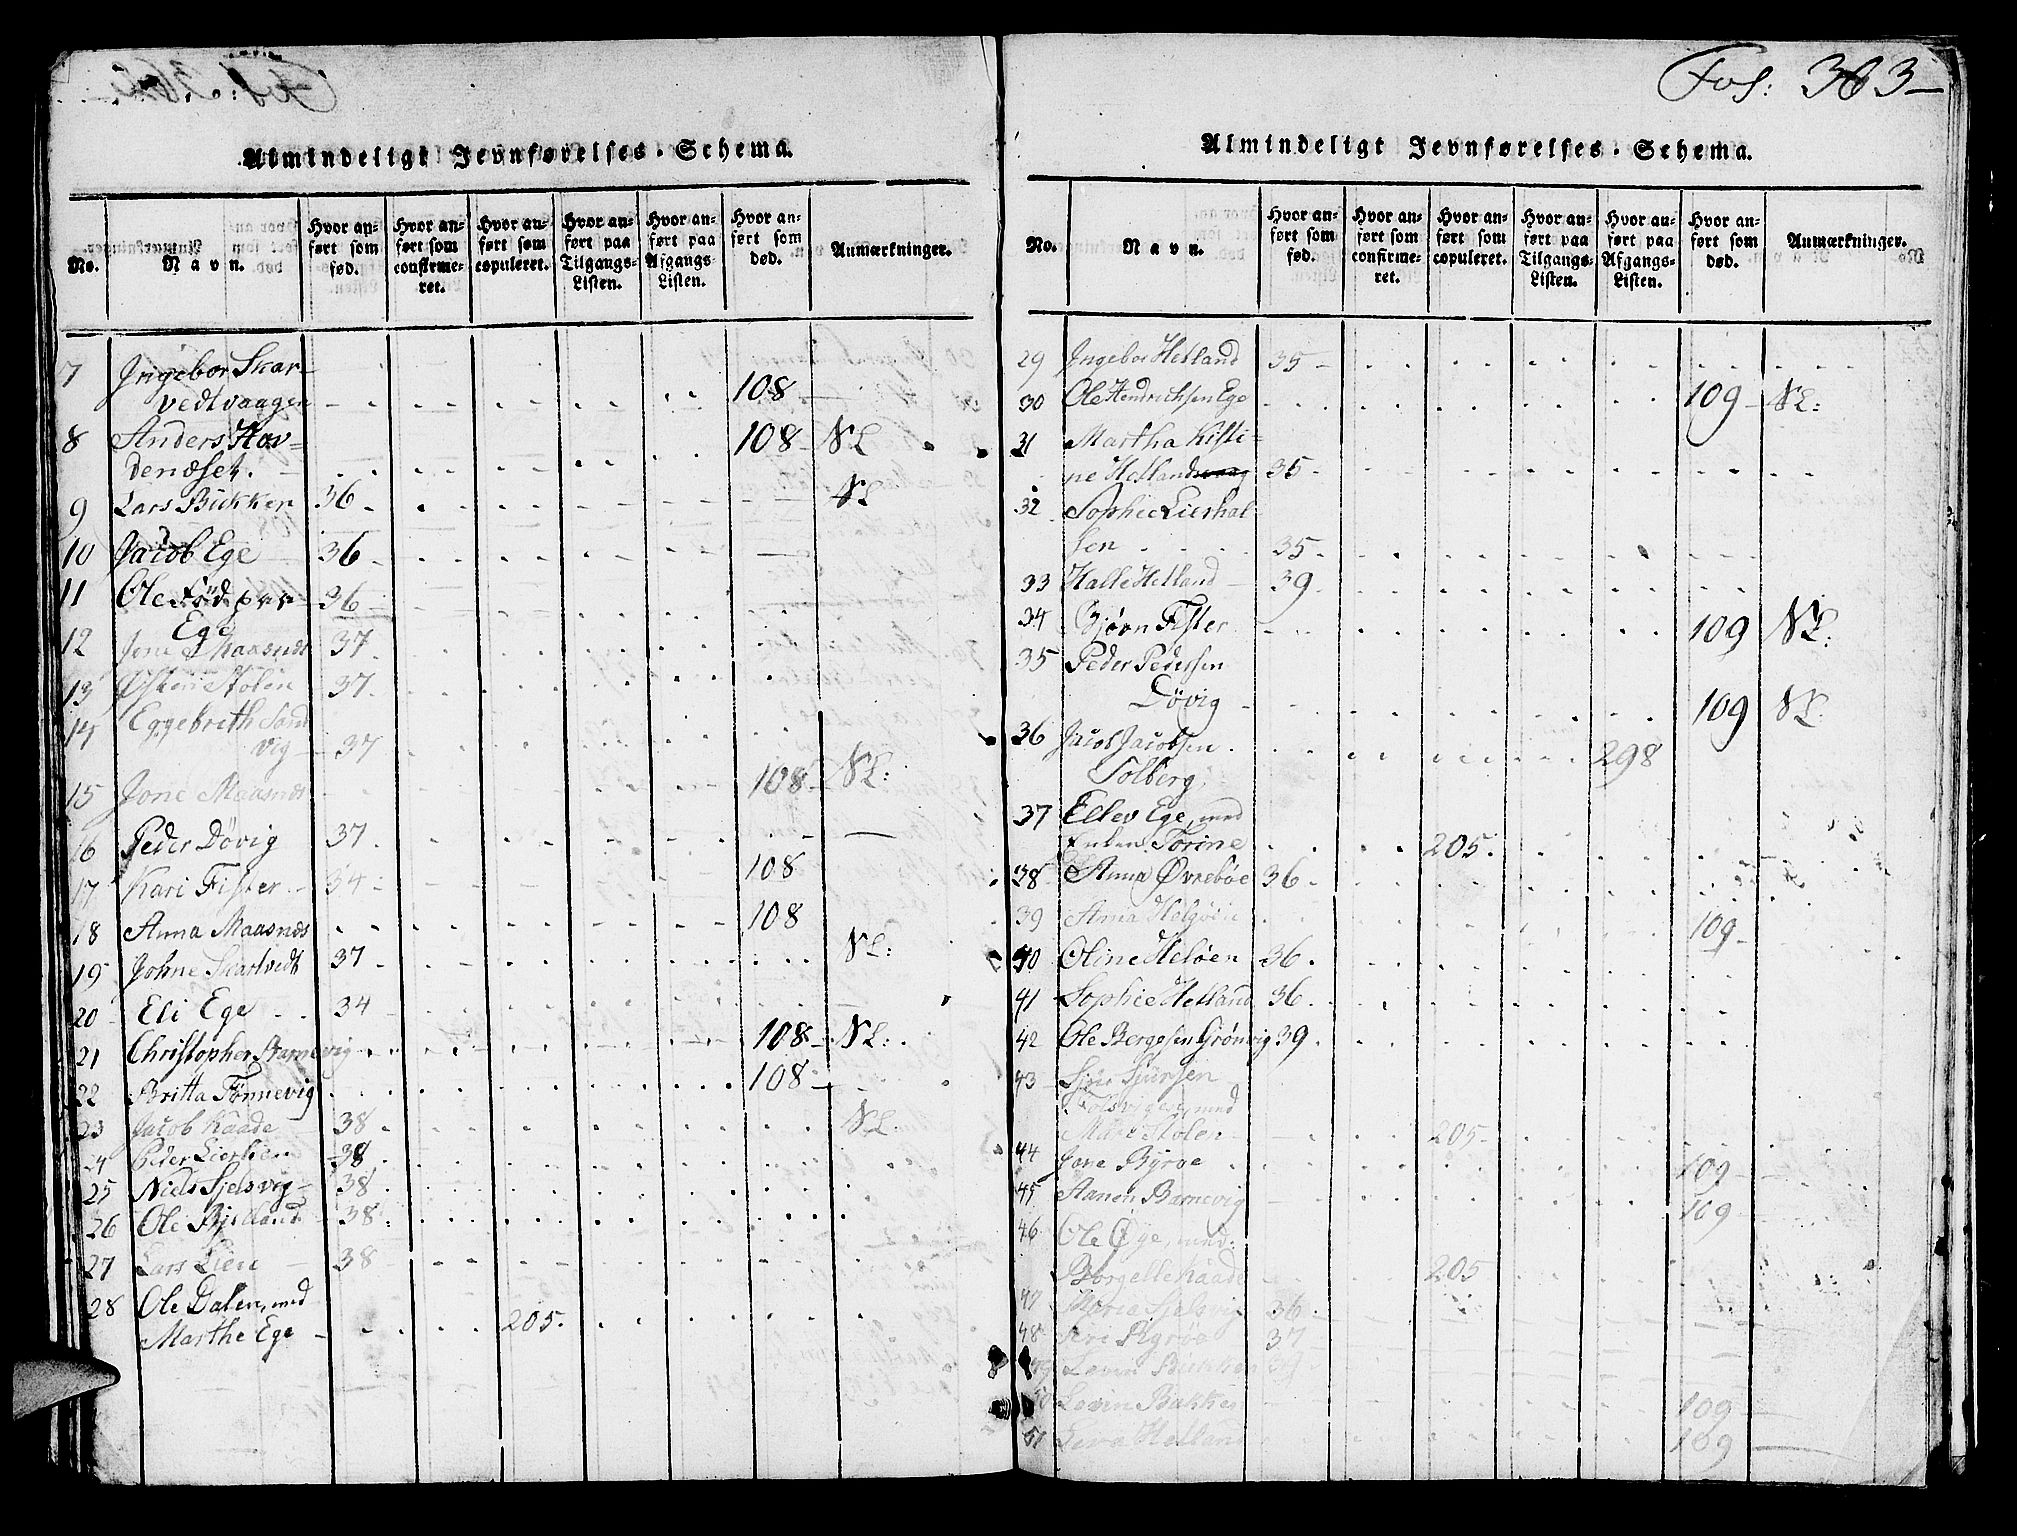 Almindeligt Jevnførelses-Schema.
No.
Navn.
Hvor anført som fød.
Hvor anført som confirmeret.
Hvor anført som copuleret.
Hvor anført paa Tilgangs-Listen.
Hvor anført paa Afgangs-Listen.
Hvor anført som død.
Anmærkninger.
7 Ingebor Skar-
vedtvaagen 108
8 Anders Hov- 108 NL
denæset.
9 Lars Bækken 36 NL
10 Jacob Ege 36
11 Ole Fød 36
Ege
12 Jone Maasnæs 37
13 Østen Stolen 37
14 Eggebreth Sand
vig 37
15 Jone Maasnæs 108 NL:
16 Peder Døvig 37
17 Kari Fister 34 108
18 Anna Maasnæs 108
19 Johne Skartvedt 37 NL:
20 Eli Ege 34
21 Christopher Barnevig 108 NL:
22 Britta Tønnevig 108
23 Jacob Kaade 38 NL:
24 Peder Lierlien 38
25 Niels Sjelsvig 38
26 Ole Bjelland 38
27 Lars Lien 38
28 Ole Dalen, med
Marthe Ege 205.
Fol: 363
Almindeligt Jevnførelses-Schema.
No.
Navn.
Hvor anført som fød.
Hvor anført som confirmeret.
Hvor anført som copuleret.
Hvor anført paa Tilgangs-Listen.
Hvor anført paa Afgangs-Listen.
Hvor anført som død.
Anmærkninger.
29 Ingebor Hetland 35
30 Ole Hendrichsen Ege 109 NL:
31 Martha Kisti-
ne Hetland 35
32 Sophie Lierhal-
sen 35
33 Halle Hetland 39
34 Bjørn Fister 109 NL:
35 Peder Pedersen
Døvig 109 NL
36 Jacob Jacobsen 298
Solberg
37 Ellev Ege, med
Enken Torine 205.
38 Anna Øvrebøe 36
39 Anna Helgøen 109
40 Oline Heløen 36
41 Sophie Hetland 36
42 Ole Bergesen Grønvig 39
43 Sjur Sjursen
med
Stolen 205
44 Jone Byrøe 109
45 Aanen Barnevig 109
46 Ole Øye, med
Borgelle Kaade 205
47 Maria Sjelsvig 36
48 Siri Byrøe 37
49
50 Lovin Bakken 109
51 Hetland 109